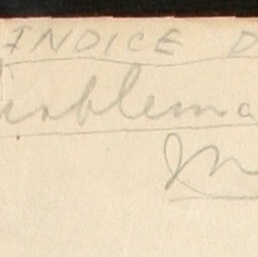 INDICE D
roblema
M